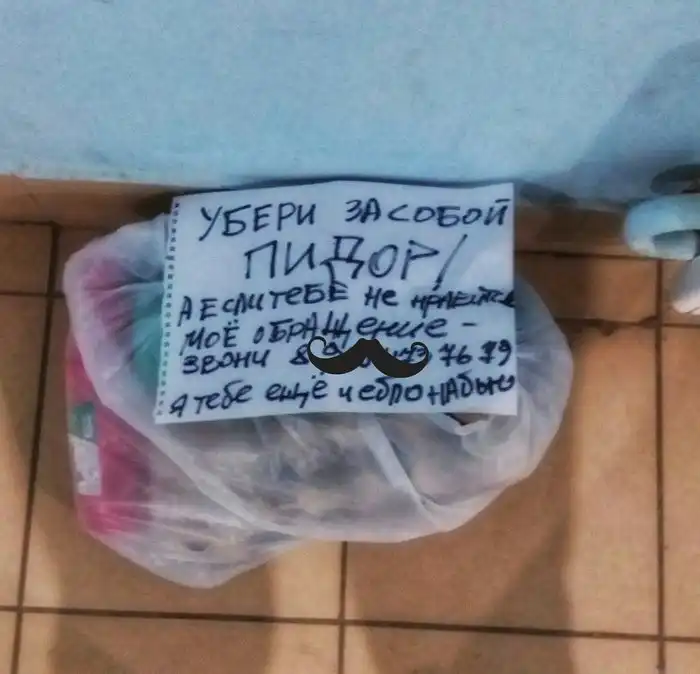 УБЕРИ ЗА СОБОЙ
ПИДОР!
А ЕСЛИ ТЕБЕ НЕ НРАВИТСЯ
МОЁ ОБРАЩЕНИЕ -
ЗВОНИ 8 76 79
Я ТЕБЕ ЕЩЁ И ЕБЛО НАБЬЮ